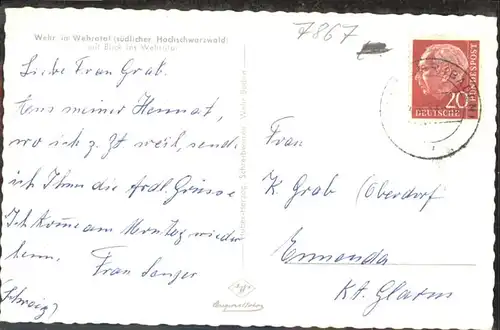 Wehr im Wehratal (südlicher Hochschwarzwald)
mit Blick ins Wehratal
7867
Liebe Frau Grab.
Aus meiner Heimat,
wo ich z. Zt weil, sende
ich Ihnen die hrdl. Grüsse
Ich komme am Montag wieder
heim.
Frau
(Schweiz)
20
DEUTSCHE BUNDESPOST
Frau
K. Grab (Oberdorf
Ennenda
Kt. Glarus